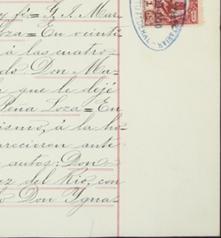 y fé = G. I. Mar
oza = En veinti
á las cuatro
do Don Ma-
a que le dejé
Pena Loza = En
ismo, á la ho-
arecieron ante
autos; Don
ez del Rio, con
o Don Ygna